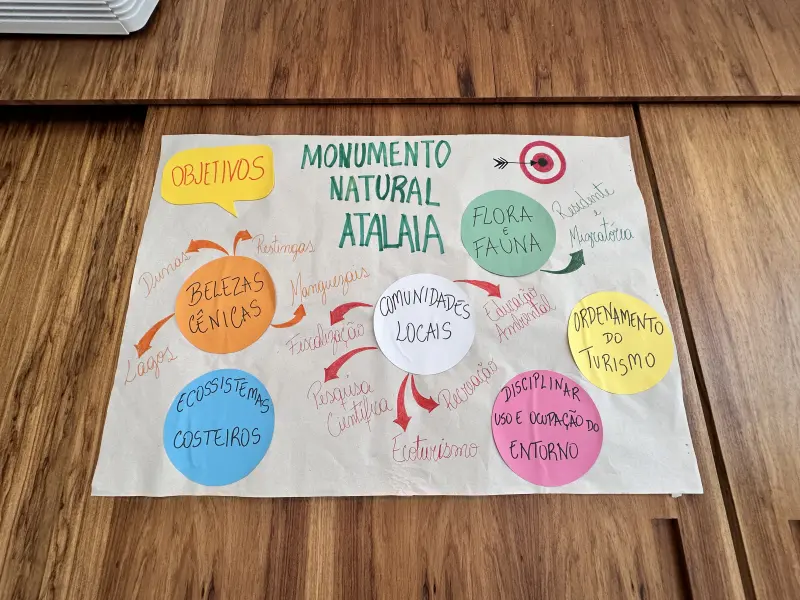 OBJETIVOS
MONUMENTO
NATURAL
ATALAIA
FLORA
E
FAUNA
Residente
e
Migratória
Dunas
Restingas
Manguezais
BELEZAS
CÊNICAS
Lagos
COMUNIDADES
LOCAIS
Fiscalização
Educação
Ambiental
Pesquisa
Científica
Ecoturismo
Recreação
ORDENAMENTO
DO
TURISMO
ECOSSISTEMAS
COSTEIROS
DISCIPLINAR
USO E OCUPAÇÃO DO
ENTORNO